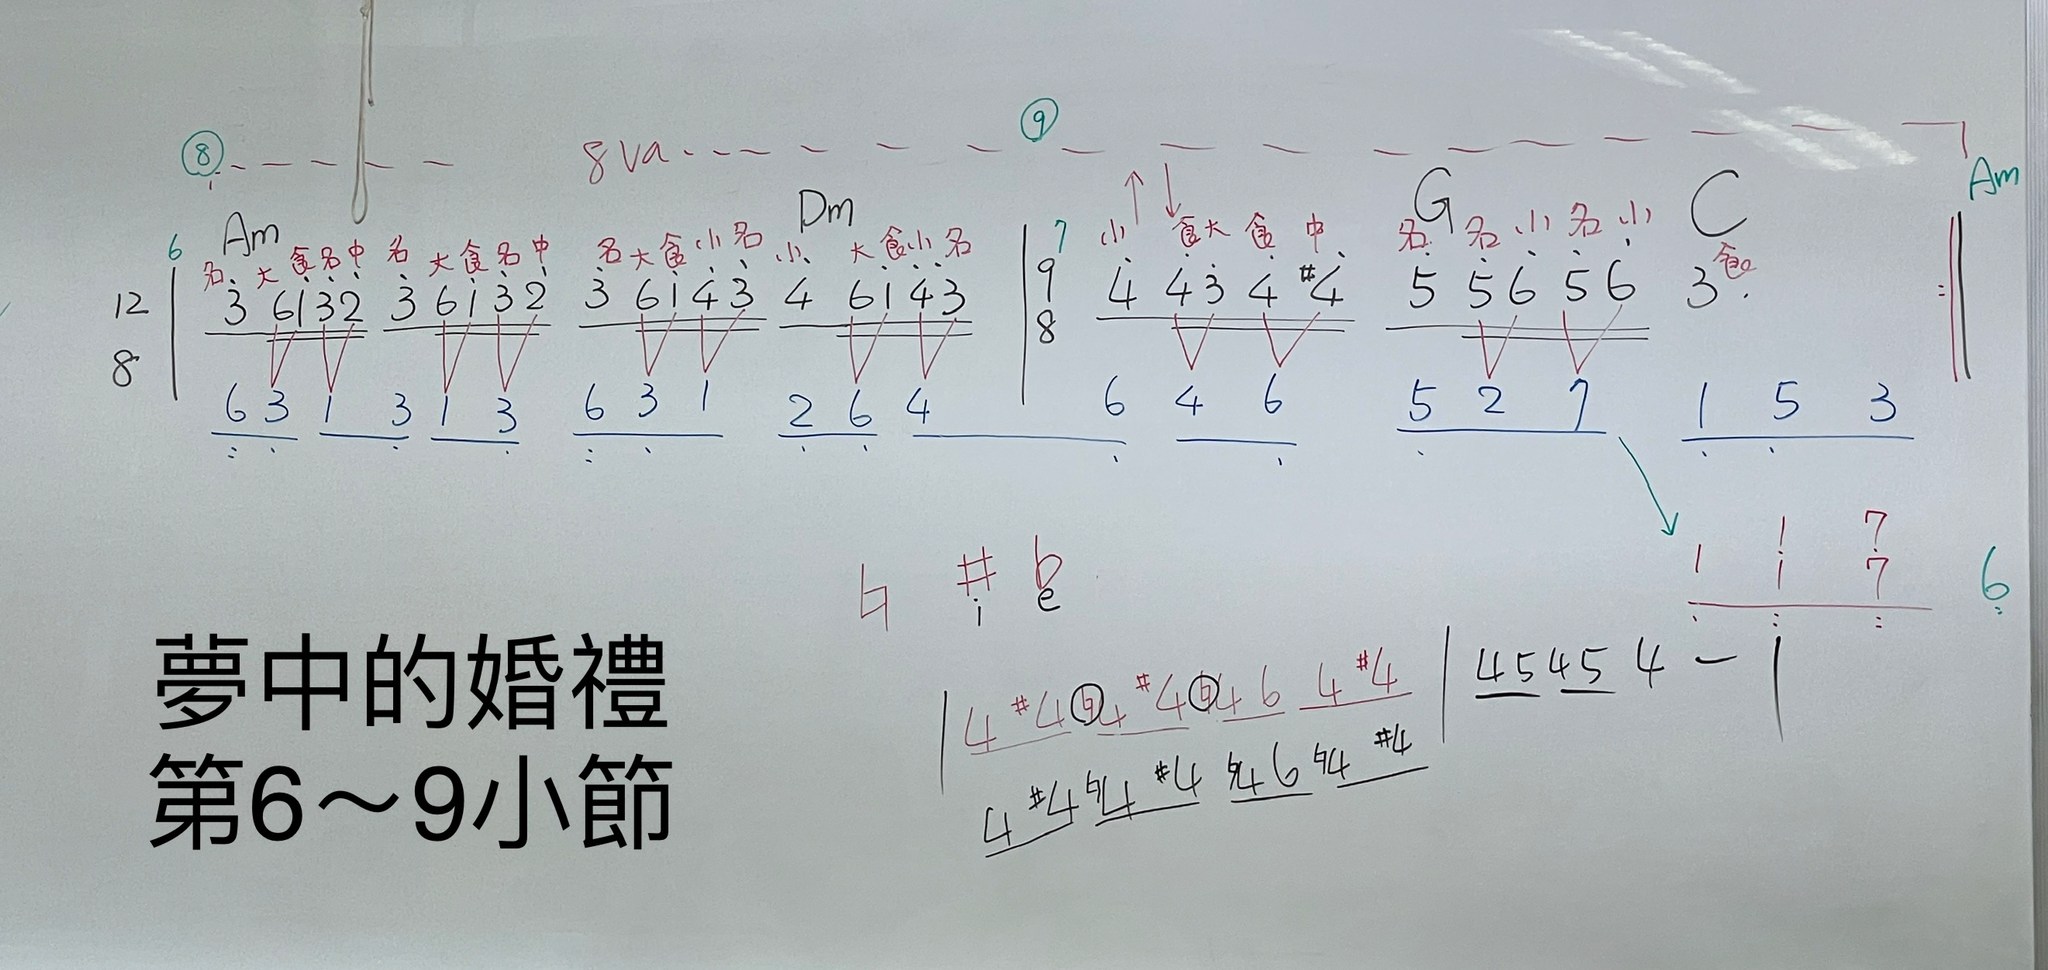 ⑧ 8va ⑨
Am Dm G C Am
6 名 大 食 名 中 名 大 食 名 中 名 大 食 小 名 小 大 食 小 名 7 小 ↑ ↓ 食 大 食 中 名 名 小 名 小 食
12 8 | 3 6132 3 6132 3 6143 4 6143 | 9 8 4 434#4 5 5656 3. :||
6 3 1 3 1 3 6 3 1 2 6 4 6 4 6 5 2 7 1 5 3
1 7
1 1 7 6
♮ # b
i e
| 4 #4 ♮4 #4 ♮4 6 4 #4 | 45 45 4 – |
4 #4 ♮4 #4 ♮4 6 ♮4 #4
夢中的婚禮
第6～9小節